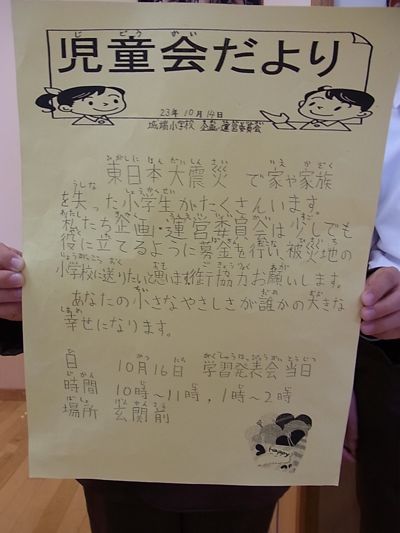 児童会だより
じどうかい
23年10月14日
城端小学校 企画・運営委員会
東日本大震災 で家や家族
を失った小学生がたくさんいます。
私たち企画・運営委員会は少しでも
役に立てるように募金を行い、被災地の
小学校に送りたいと思います。ご協力お願いします。
あなたの小さなやさしさが誰かの大きな
幸せになります。
日 10月16日 学習発表会当日
時間 10時~11時,1時~2時
場所 玄関前
happy